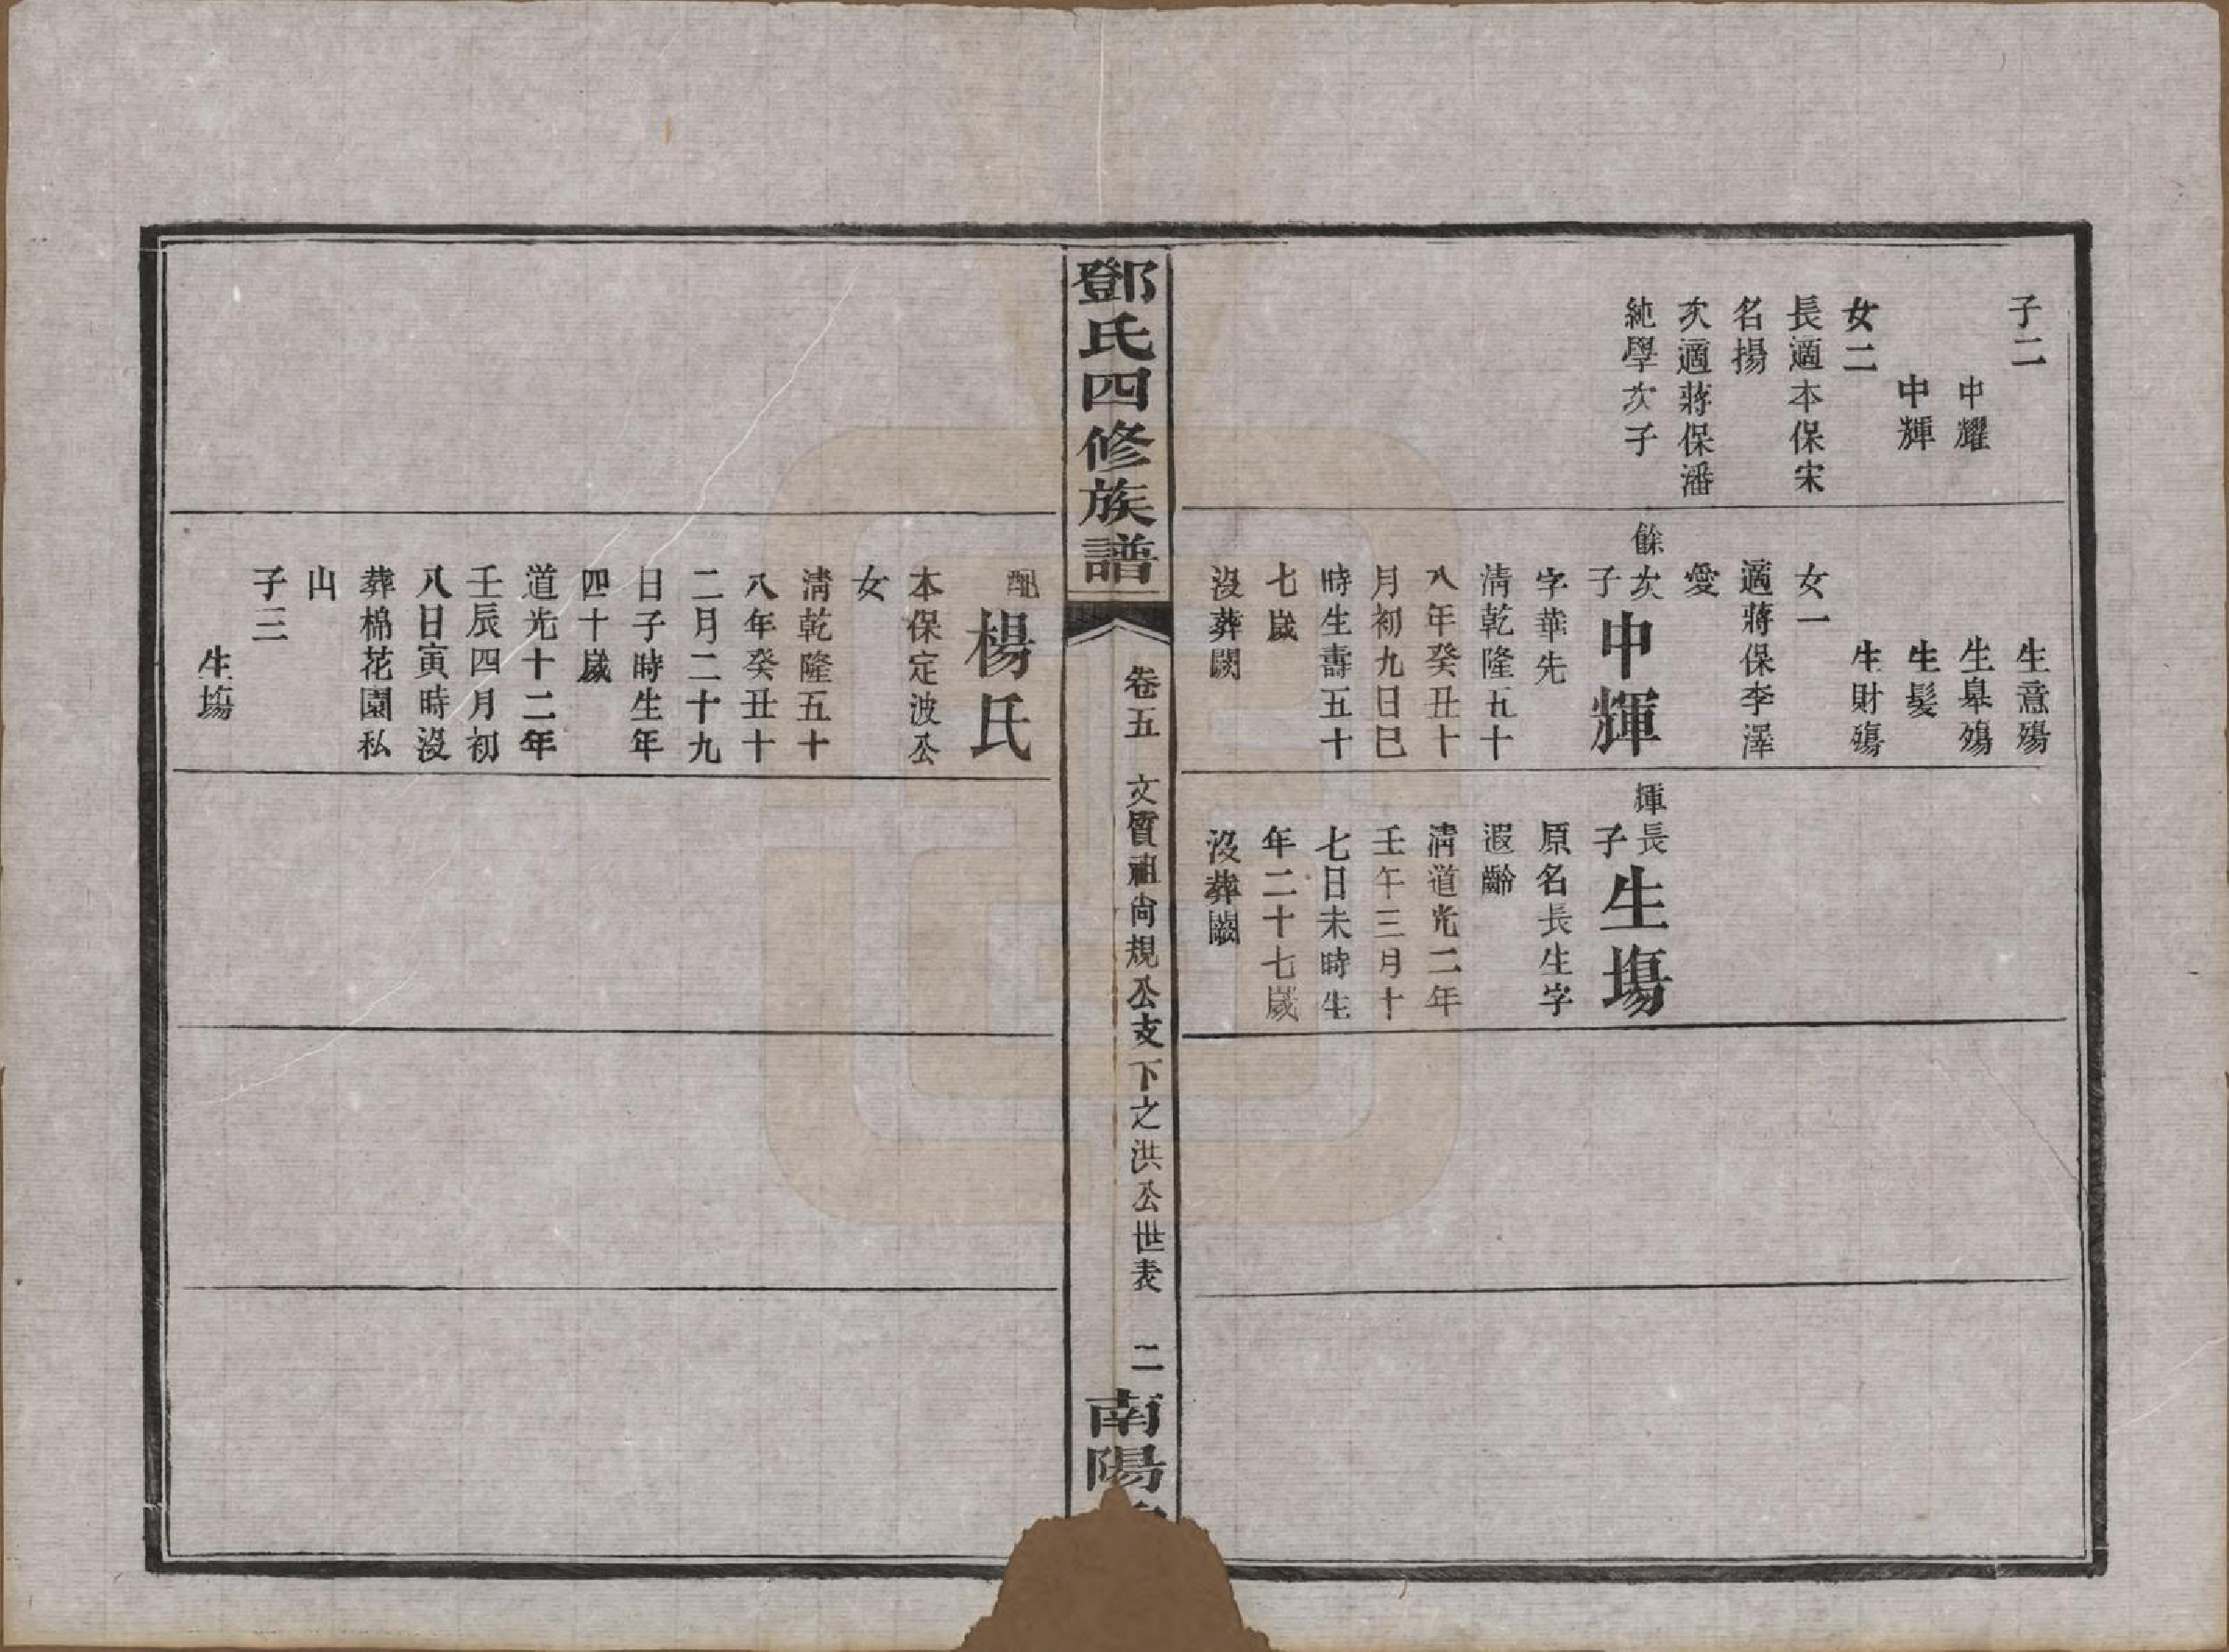 子二
中耀
中輝
女二
長適本保宋
名揚
次適蔣保潘
純學次子
生意殤
生皋殤
生髮
生財殤
女一
適蔣保李澤
愛
餘次
子
中輝
字華先
清乾隆五十
八年癸丑十
月初九日巳
時生壽五十
七歲
沒葬闕
輝長
子
生塲
原名長生字
遐齡
清道光二年
壬午三月十
七日未時生
年二十七歲
沒葬闕
鄧氏四修族譜
卷五
文質祖尙規公支下之洪公世表
二
南陽
配
楊氏
本保定波公
女
清乾隆五十
八年癸丑十
二月二十九
日子時生年
四十歲
道光十二年
壬辰四月初
八日寅時沒
葬棉花園私
山
子三
生塲